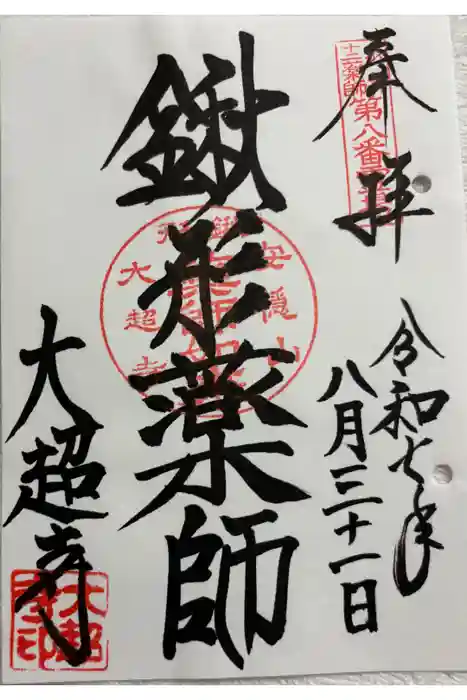 奉拝
十二薬師
第八番
令和七年
八月三十一日
鍬形薬師
安隠山
大超寺
大超寺